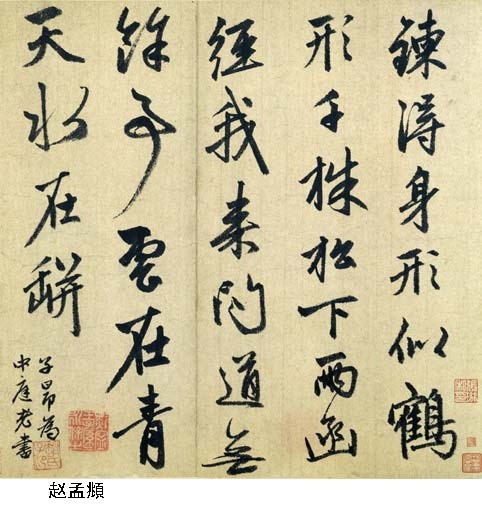 鍊得身形似鶴
形千株松下兩函
經我來問道無
餘事雲在青
天水在缾
子昂為
中庭老書
赵孟頫